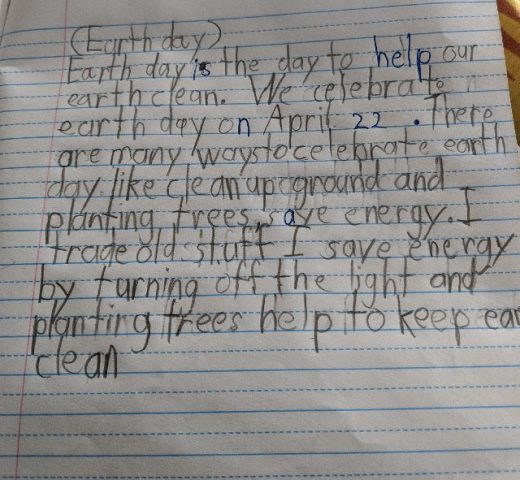 (Earth day)
Earth day is the day to help our
earth clean. We celebrate
earth day on April 22 . There
are many ways to celebrate earth
day like clean up ground and
planting trees, save energy. I
trade old stuff I save energy
by turning off the light and
planting trees help to keep ear
clean